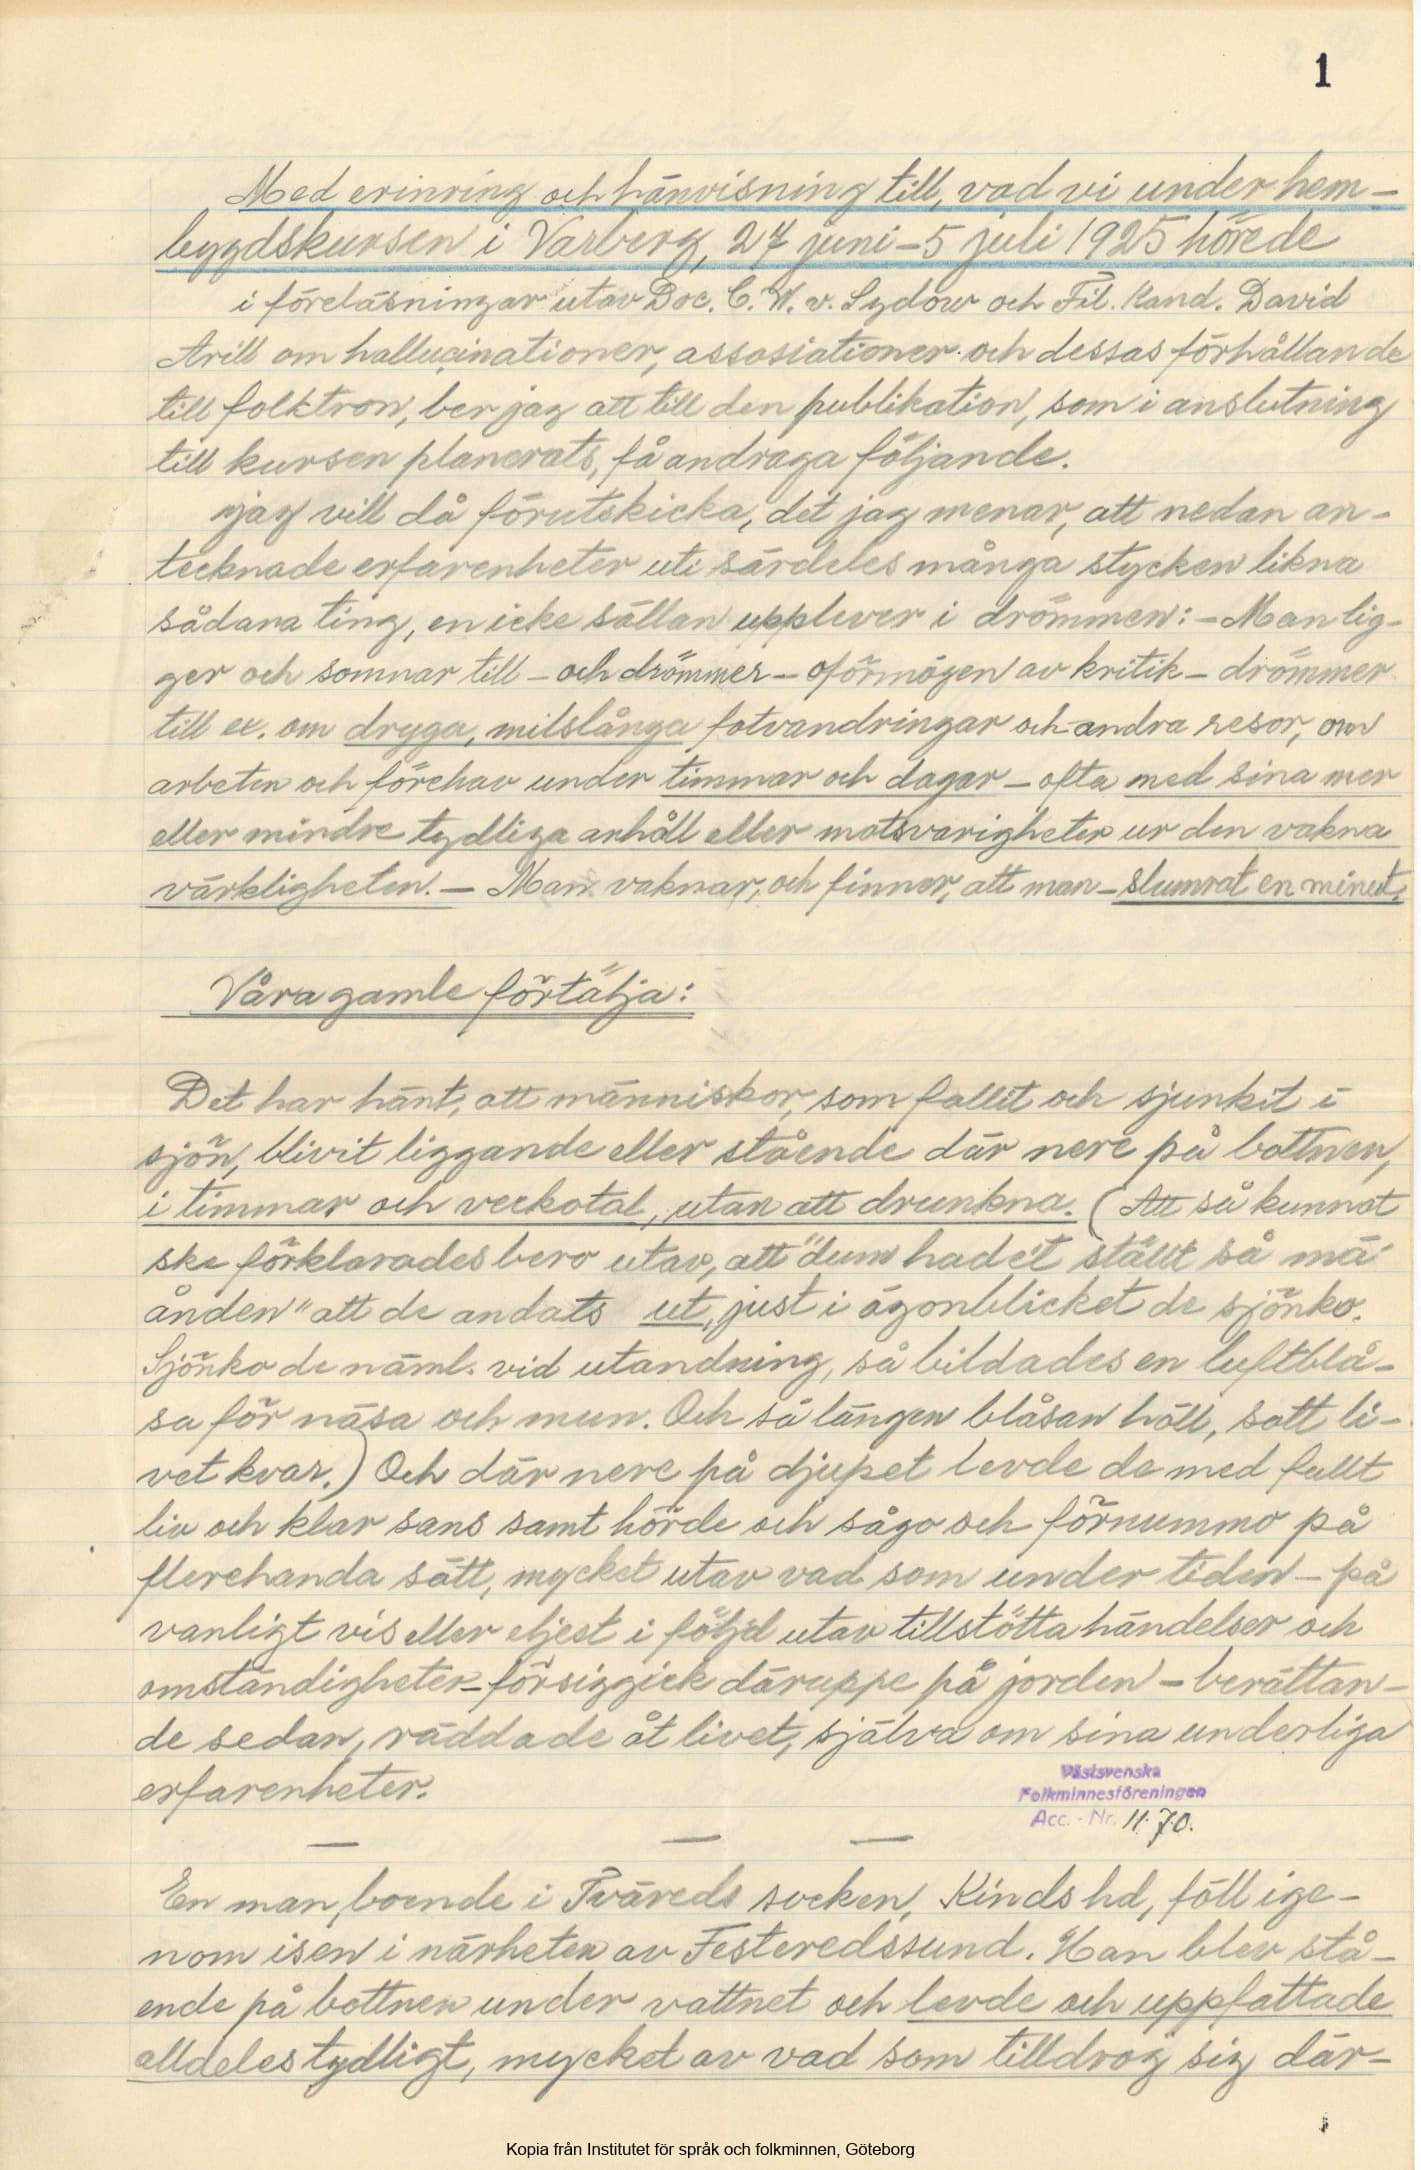 1
Med erinring och hänvisning till, vad vi under hem-
bygdskursen i Varberg, 27 juni-5 juli 1925 hörde
i föreläsningar utav Doc. C. W. v. Sydow och Fil. Kand. David
Arill om hallucinationer, assosiationer och dessas förhållande
till folktron, ber jag att till den publikation, som i anslutning
till kursen planerats, få andraga följande.
Jag vill då förutskicka, det jag menar, att nedan an-
tecknade erfarenheter uti särdeles många stycken likna
sådana ting, en icke sällan upplever i drömmen: - Man lig-
ger och somnar till - och drömmer - oförmögen av kritik - drömmer
till ex. om dryga, milslånga fotvandringar och andra resor, om
arbeten och förehav under timmar och dagar - ofta med sina mer
eller mindre tydliga anhåll eller motsvarigheter ur den vakna
värkligheten. - Man vaknar, och finner, att man - slumrat en minut.
Våra gamle förtälja:
Det har hänt, att människor, som fallit och sjunkit i
sjön, blivit liggande eller stående där nere på bottnen,
i timmar och veckotal, utan att drunkna. (Att så kunnat
ske förklarades bero utav, att "dum hade't ställt så mä
ånden" att de andats ut, just i ögonblicket de sjönko.
Sjönko de näml. vid utandning, så bildades en luftblå-
sa för näsa och mun. Och så längen blåsan höll, satt li-
vet kvar.) Och där nere på djupet levde de med fullt
liv och klar sans samt hörde och sågo och förnummo på
flerehanda sätt, mycket utav vad som under tiden - på
vanligt vis eller eljest i följd utav tillstötta händelser och
omständigheter - försiggick däruppe på jorden - berättan-
de sedan, räddade åt livet, själva om sina underliga
erfarenheter.
Västsvenska
Folkminnesföreningen
Acc.-Nr. 1170.
En man, boende i Tväreds socken, Kinds hd, föll ige-
nom isen i närheten av Festeredssund. Han blev stå-
ende på bottnen under vattnet och levde och uppfattade
alldeles tydligt, mycket av vad som tilldrog sig där-
Kopia från Institutet för språk och folkminnen, Göteborg